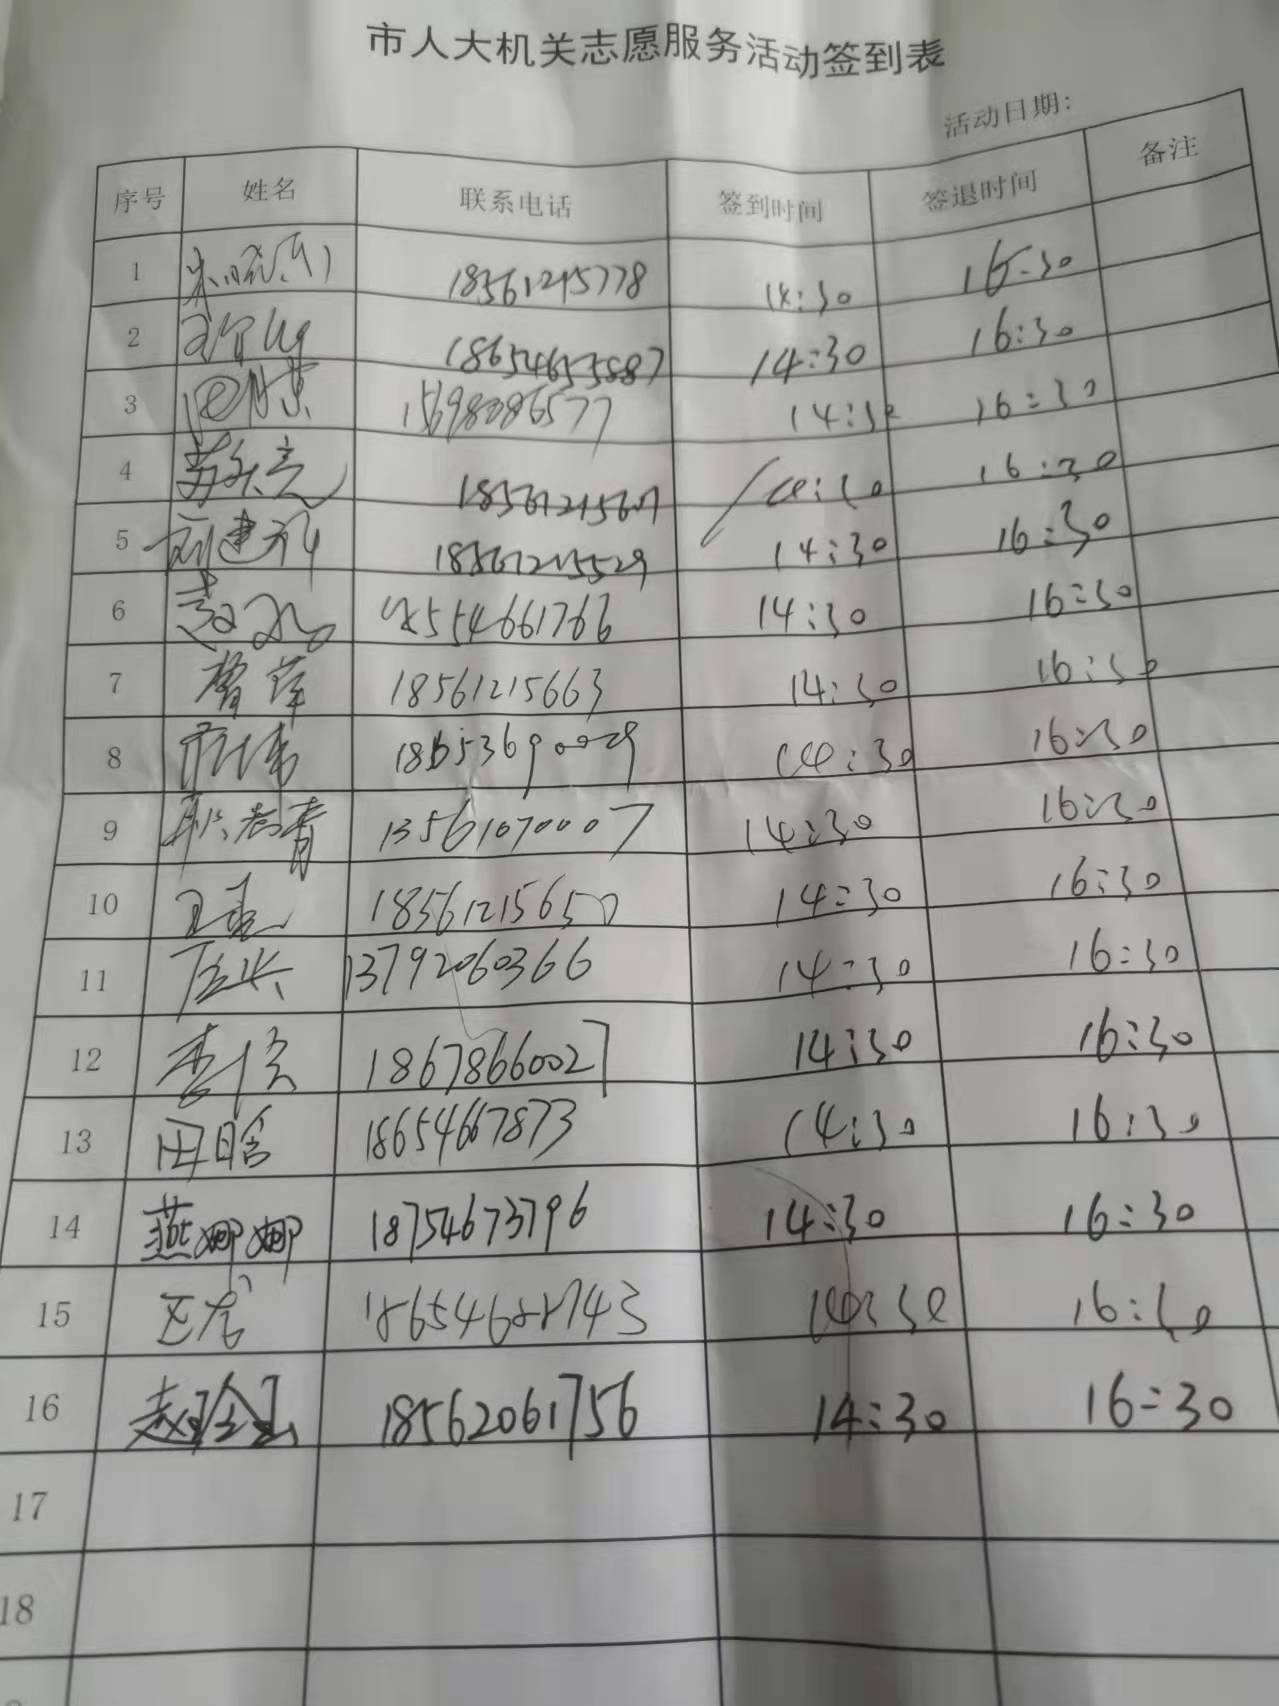 市人大机关志愿服务活动签到表
活动日期:
序号 姓名 联系电话 签到时间 签退时间 备注
1 18561215778 14:30 16:30
2 18654655887 14:30 16:30
3 15698086577 14:30 16:30
4 苏东亮 18561215607 14:30 16:30
5 刘建 18561215529 14:30 16:30
6 14:30 16:30
7 18561215663 14:30 16:30
8 14:30 16:30
9 13561070007 14:30 16:30
10 18561215650 14:30 16:30
11 13792060366 14:30 16:30
12 李 18678660027 14:30 16:30
13 田晗 18654667873 14:30 16:30
14 燕娜娜 18754673796 14:30 16:30
15 14:30 16:30
16 赵 18562061756 14:30 16:30
17
18